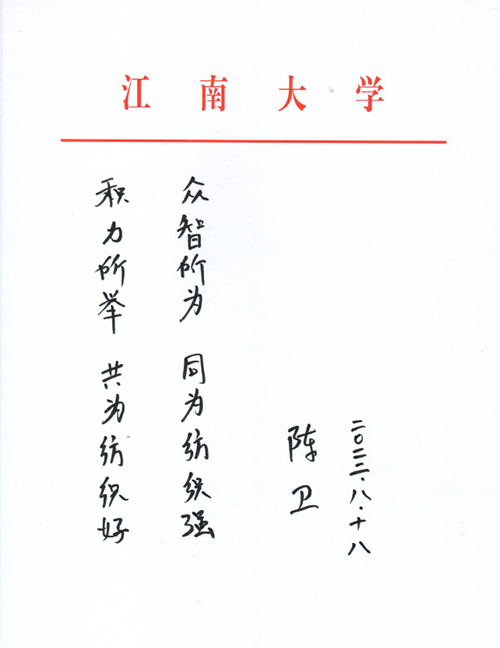 江南大学
积力所举 共为纺织好
众智所为 同为纺织强
陈卫
二〇二二.八.十八